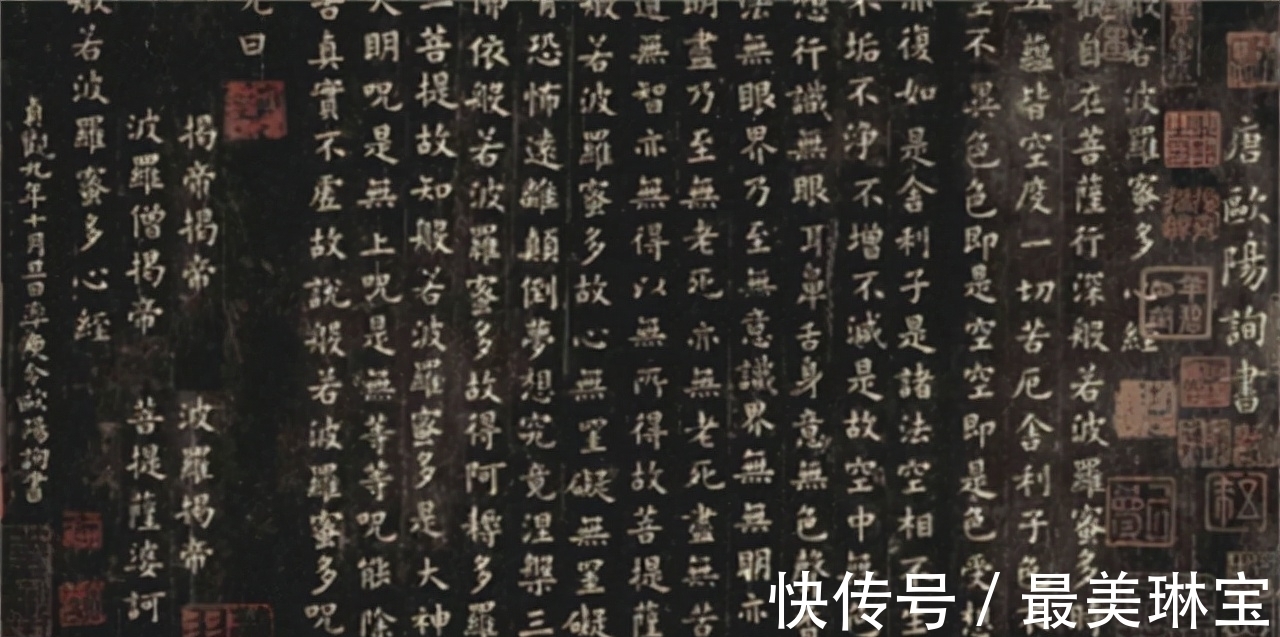 唐歐陽詢書
般若波羅蜜多心經
自在菩薩行深般若波羅蜜多
五蘊皆空度一切苦厄舍利子色
空不異色色即是空空即是色受想
亦復如是舍利子是諸法空相不
不垢不淨不增不減是故空中無
想行識無眼耳鼻舌身意無色聲
法無眼界乃至無意識界無無明亦
明盡乃至無老死亦無老死盡無苦
道無智亦無得以無所得故菩提薩
般若波羅蜜多故心無罣礙無罣礙
有恐怖遠離顛倒夢想究竟涅槃三
佛依般若波羅蜜多故得阿耨多羅
三菩提故知般若波羅蜜多是大神
大明呪是無上呪是無等等呪能除
苦真實不虛故說般若波羅蜜多呪
曰
揭帝揭帝 波羅揭帝
波羅僧揭帝 菩提薩婆訶
般若波羅蜜多心經
貞觀九年十月旦日率更令歐陽詢書
快传号 / 最美琳宝